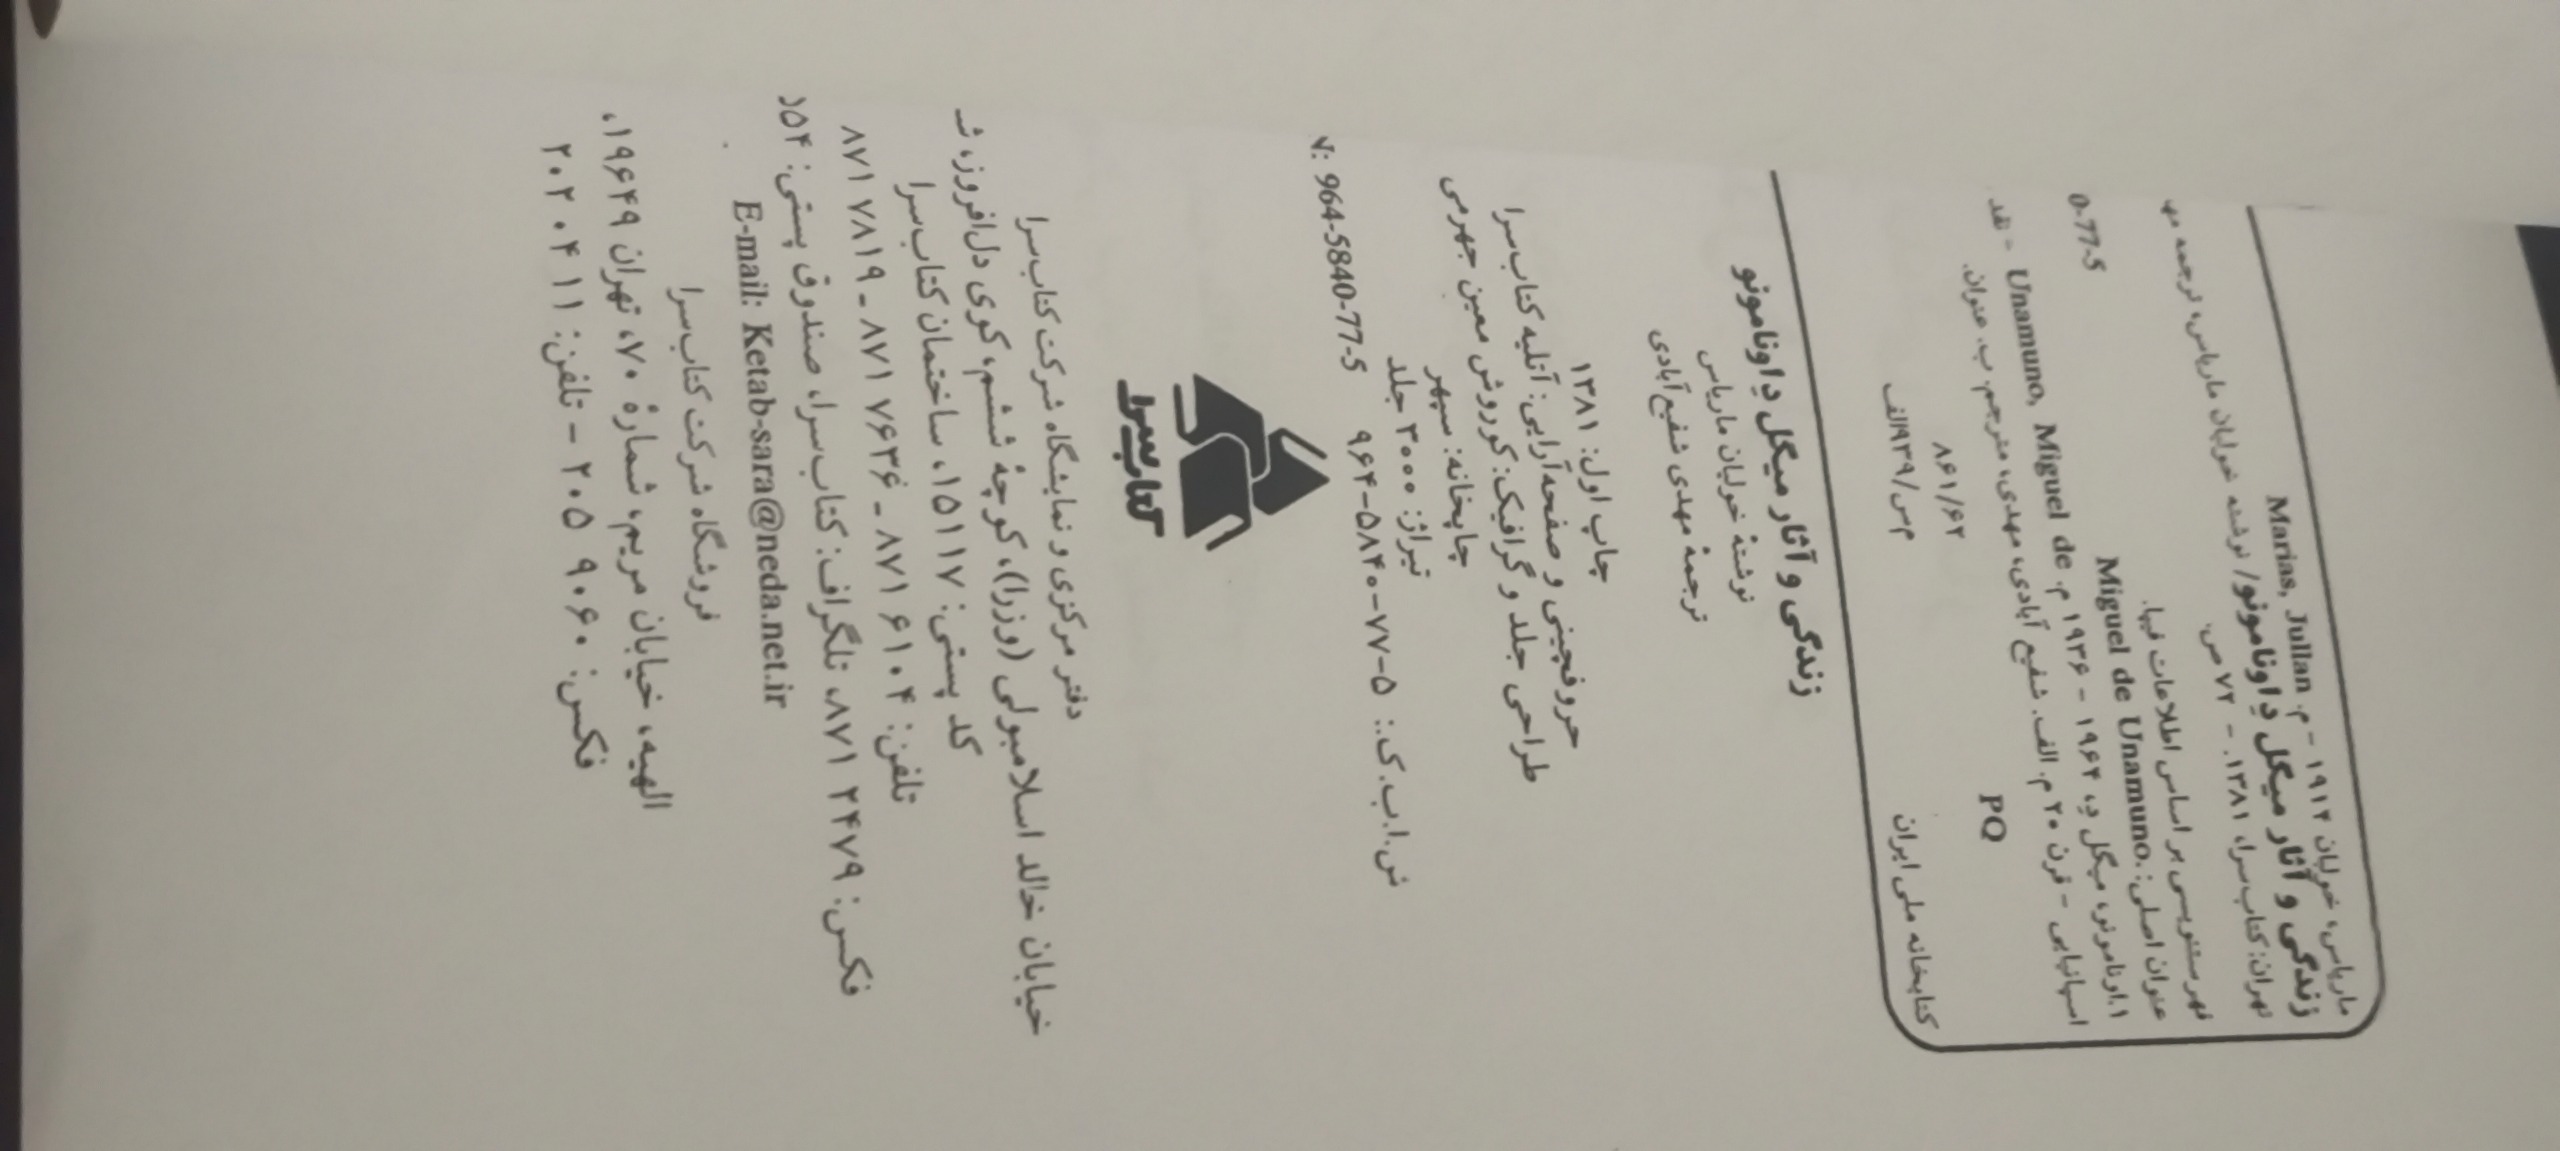 ماریاس، خولیان ۱۹۱۴ - م. Marias, Jullan
زندگی و آثار میگل دِ اونامونو/ نوشته خولیان ماریاس، ترجمه
تهران: کتاب‌سرا، ۱۳۸۱. - ۷۲ ص.
0-77-5
فهرستنویسی بر اساس اطلاعات فیپا.
عنوان اصلی: Miguel de Unamuno.
۱. اونامونو، میگل دِ، ۱۹۶۴ - ۱۹۳۶ م. Unamuno, Miguel de - نقد
اسپانیایی - قرن ۲۰ م. الف. شفیع آبادی، مهدی، مترجم. ب. عنوان.
PQ ۸۶۱/۶۲
کتابخانه ملی ایران
زندگی و آثار میگل دِ اونامونو
نوشتهٔ خولیان ماریاس
ترجمهٔ مهدی شفیع‌آبادی
چاپ اول: ۱۳۸۱
حروفچینی و صفحه‌آرایی: آتلیه کتاب‌سرا
طراحی جلد و گرافیک: کوروش معین جهرمی
چاپخانه: سپهر
تیراژ: ۳۰۰۰ جلد
ش.ا.ب.ک.: ۵-۷۷-۵۸۴۰-۹۶۴ N: 964-5840-77-5
کتاب‌سرا
دفتر مرکزی و نمایشگاه شرکت کتاب‌سرا
خیابان خالد اسلامبولی (وزرا)، کوچهٔ ششم، کوی دل‌افروز،
کد پستی: ۱۵۱۱۷، ساختمان کتاب‌سرا
تلفن: ۸۷۱۶۱۰۴ ـ ۸۷۱۷۶۳۶ ـ ۸۷۱۷۸۱۹
فکس: ۸۷۱۲۴۷۹، تلگراف: کتاب‌سرا، صندوق پستی:
E-mail: Ketab-sara@neda.net.ir
فروشگاه شرکت کتاب‌سرا
الهیه، خیابان مریم، شمارهٔ ۷۰، تهران ۱۹۶۴۹،
فکس: ۲۰۵۹۰۶۰ - تلفن: ۲۰۲۰۴۱۱